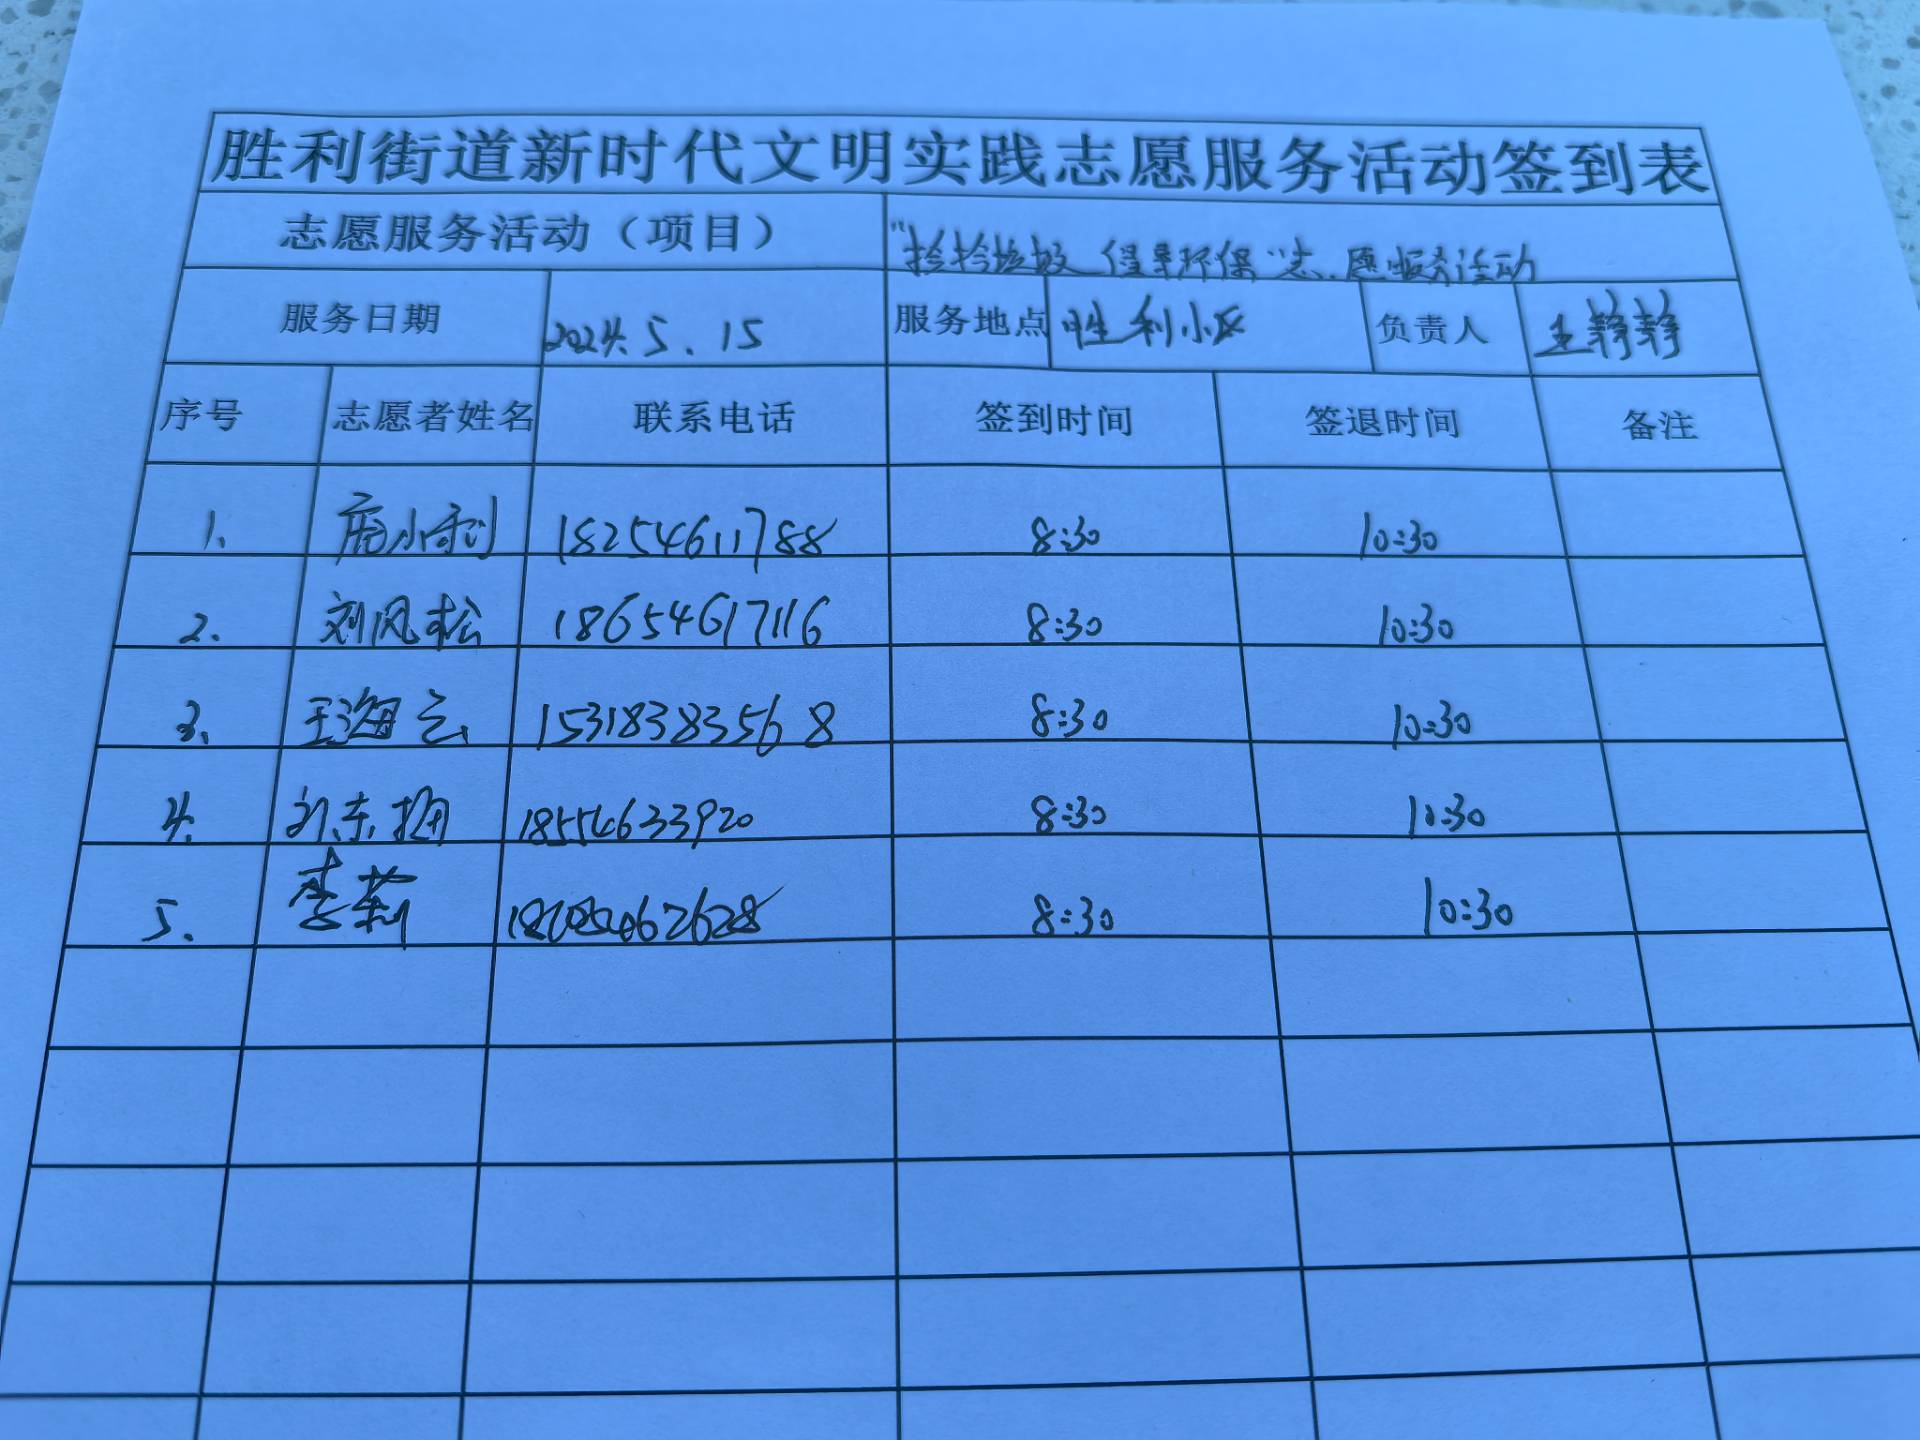 胜利街道新时代文明实践志愿服务活动签到表
志愿服务活动（项目） "捡拾垃圾 倡导环保"志愿服务活动
服务日期 2024.5.15 服务地点 胜利小区 负责人 王静静
序号 志愿者姓名 联系电话 签到时间 签退时间 备注
1. 18254611788 8:30 10:30
2. 刘风松 18654617116 8:30 10:30
3. 王海云 15318383568 8:30 10:30
4. 18554633920 8:30 10:30
5. 李莉 8:30 10:30